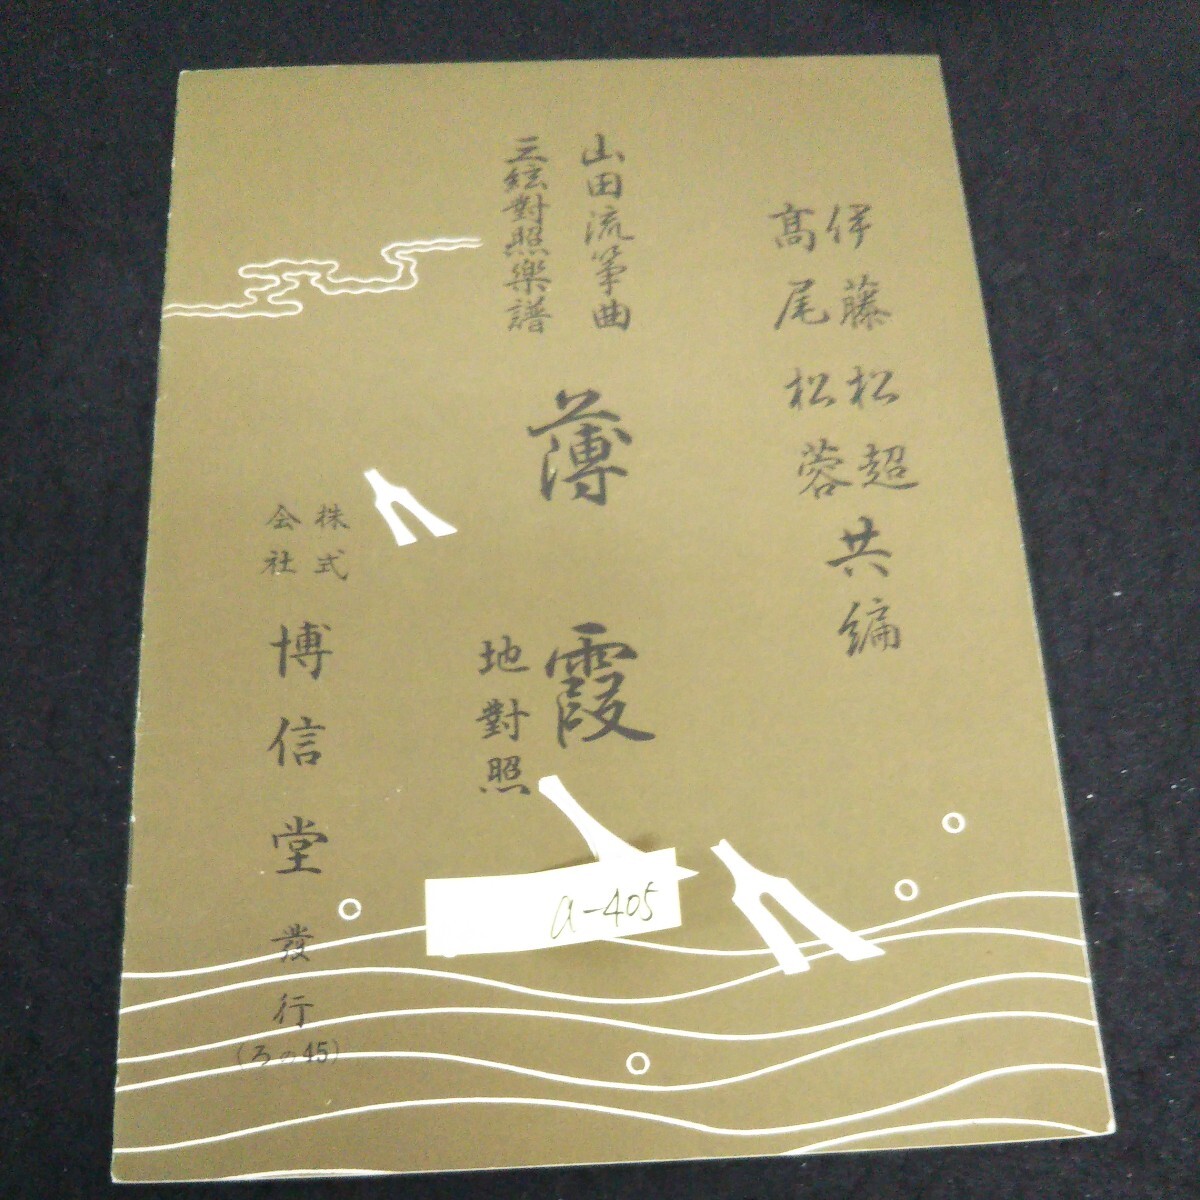 伊藤松超
髙尾松蓉
共編
山田流箏曲
三絃對照樂譜
薄霞
地對照
株式
会社
博信堂發行
(ろの45)
a-405